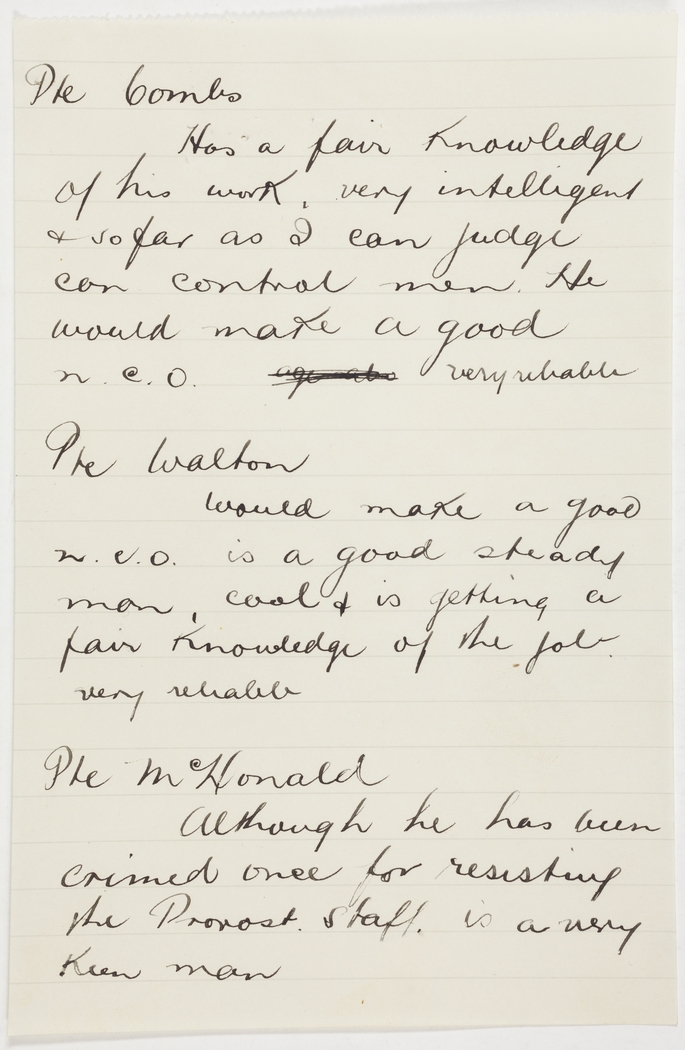 Pte Combs
Has a fair knowledge
of his work, very intelligent
& so far as I can judge
can control men. He
would make a good
n.c.o. very reliable
Pte Walton
Would make a good
n.c.o. is a good steady
man, cool & is getting a
fair knowledge of the job.
very reliable
Pte McHonald
Although he has been
crimed once for resisting
the Provost. Staff. is a very
keen man